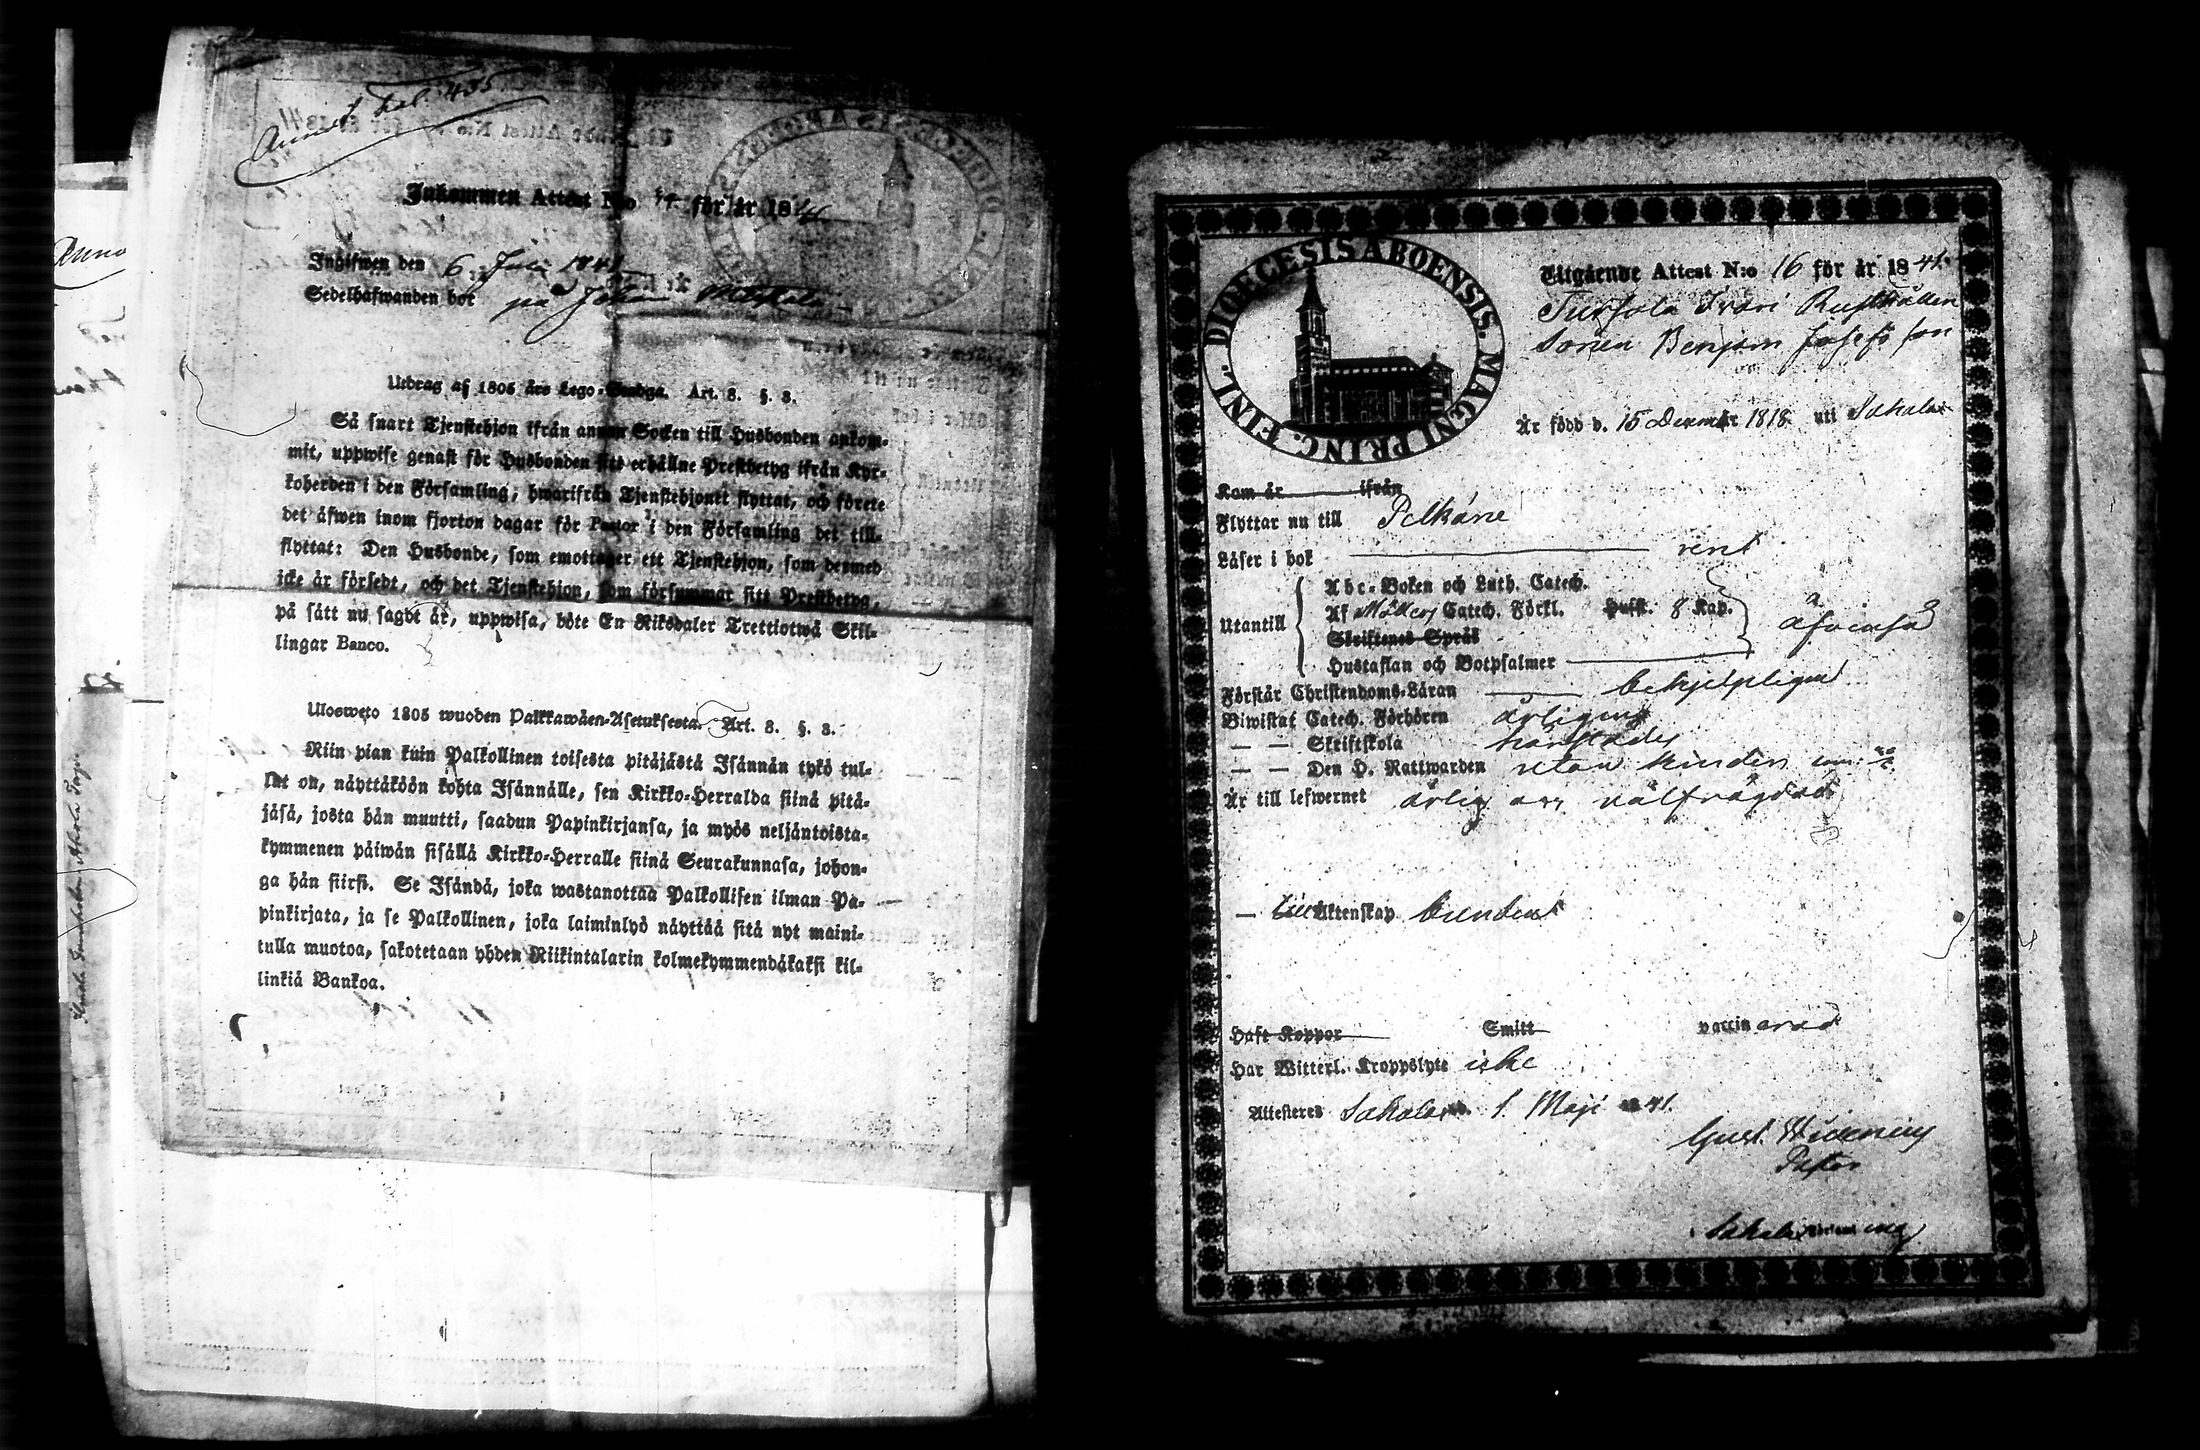 Fol. 435.
Inkommen Attest N:o för år 1841
Ingifwen den 6 Juli 1841
Sedelhafwanden bor på Johan
Utdrag af 1805 års Lego-Stadga. Art. 8. §. 3.
Så snart Tjenstehjon ifrån annan Socken till Husbonden ankom-
mit, uppwise genast för Husbonden sitt erhållne Prestbetyg ifrån Kyr-
koherden i den Församling, hwarifrån Tjenstehjonet flyttat, och förete
det äfwen inom fjorton dagar för Pastor i den Församling det till-
flyttat: Den Husbonde, som emottager ett Tjenstehjon, som dermed
icke är försedt, och det Tjenstehjon, som försummar sitt Prestbetyg,
på sätt nu sagdt är, uppwisa, böte En Riksdaler Trettiotwå Skil-
lingar Banco.
Ulosweto 1805 wuoden Palkkawäen-Asetuksesta. Art. 8. §. 3.
Niin pian kuin Palkollinen toisesta pitäjästä Isännän tykö tul-
lut on, näyttäköön kohta Isännälle, sen Kirkko-Herralda siinä pitä-
jäsä, josta hän muutti, saadun Papinkirjansa, ja myös neljäntoista-
kymmenen päiwän sisällä Kirkko-Herralle siinä Seurakunnasa, johon-
ga hän siirsi. Se Isändä, joka wastanottaa Palkollisen ilman Pa-
pinkirjata, ja se Palkollinen, joka laiminlyö näyttää sitä nyt maini-
tulla muotoa, sakotetaan yhden Riikintalarin kolmekymmendäkaksi kil-
linkiä Bankoa.
Anno
DIOECESIS ABOENSIS. MAGNI PRINC. FINL.
Utgående Attest N:o 16 för år 1841.
Sonen Benjam Josefs son
Är född d. 15 December 1818 uti Sahalax
Kom år ifrån
Flyttar nu till Pelkäne
Läser i bok rent
Utantill
Abc-Boken och Luth. Catech.
Af Möllers Catech. Förkl. Husst. 8 Kap.
Skriftenes Språk
Hustaflan och Botpsalmer
Förstår Christendoms-Läran behjelpligen
Biwistat Catech. Förhören årligen
— — Skriftskola härstädes
— — Den H. Nattwarden
Är till lefwernet ärlig och välfrägdad
— Till Äktenskap
Haft Koppor Smitt vaccinerad
Har Witterl. Kroppslyte icke
Attesteras Sahalax d. 1. Maji 1841.
Gust.
Pastor